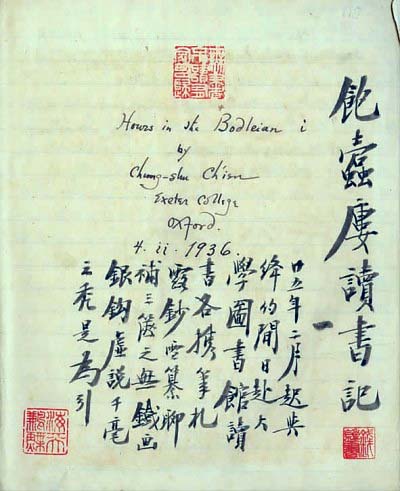 Hours in the Bodleian i
by
Chung-shu Ch'ien
Exeter College
Oxford.
4. ii. 1936.
飽蠹廔讀書記
一
廿五年二月起與
絳約間日赴大
學圖書館讀
書各携筆札
露鈔雪纂聊
補三篋之無鐵画
銀鈎虛說千毫
之禿是為引